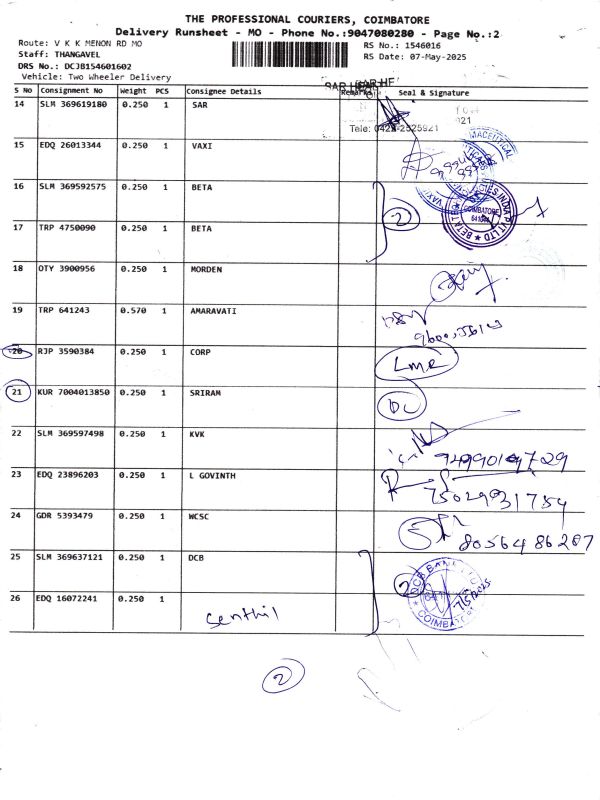 THE PROFESSIONAL COURIERS, COIMBATORE
Delivery Runsheet - MO - Phone No.:9047080280 - Page No.:2
Route: V K K MENON RD MO
RS No.: 1546016
Staff: THANGAVEL
RS Date: 07-May-2025
DRS No.: DCJB154601602
Vehicle: Two Wheeler Delivery
S No Consignment No Weight PCS Consignee Details Remarks Seal & Signature
14 SLM 369619180 0.250 1 SAR
Tele: 0422-2525921
15 EDQ 26013344 0.250 1 VAXI
16 SLM 369592575 0.250 1 BETA
2
COIMBATORE
17 TRP 4750090 0.250 1 BETA
18 OTY 3900956 0.250 1 MORDEN
19 TRP 641243 0.570 1 AMARAVATI
20 RJP 3590384 0.250 1 CORP
LMR
21 KUR 7004013850 0.250 1 SRIRAM
DC
22 SLM 369597498 0.250 1 KVK
23 EDQ 23896203 0.250 1 L GOVINTH
75029931754
24 GDR 5393479 0.250 1 WCSC
8056486287
25 SLM 369637121 0.250 1 DCB
2
DCB BANK
7/5/2025
COIMBATORE
26 EDQ 16072241 0.250 1
Senthil
2